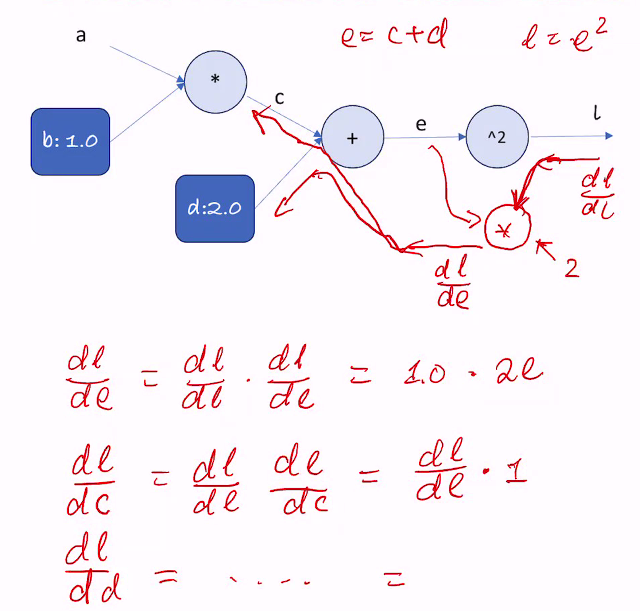 a
e = c + d
l = e²
*
c
b: 1.0
+
e
^2
l
d:2.0
dl/dl
*
2
dl/de
dl/de = dl/dl · dl/de = 1.0 · 2e
dl/dc = dl/de de/dc = dl/de · 1
dl/dd = ..... =